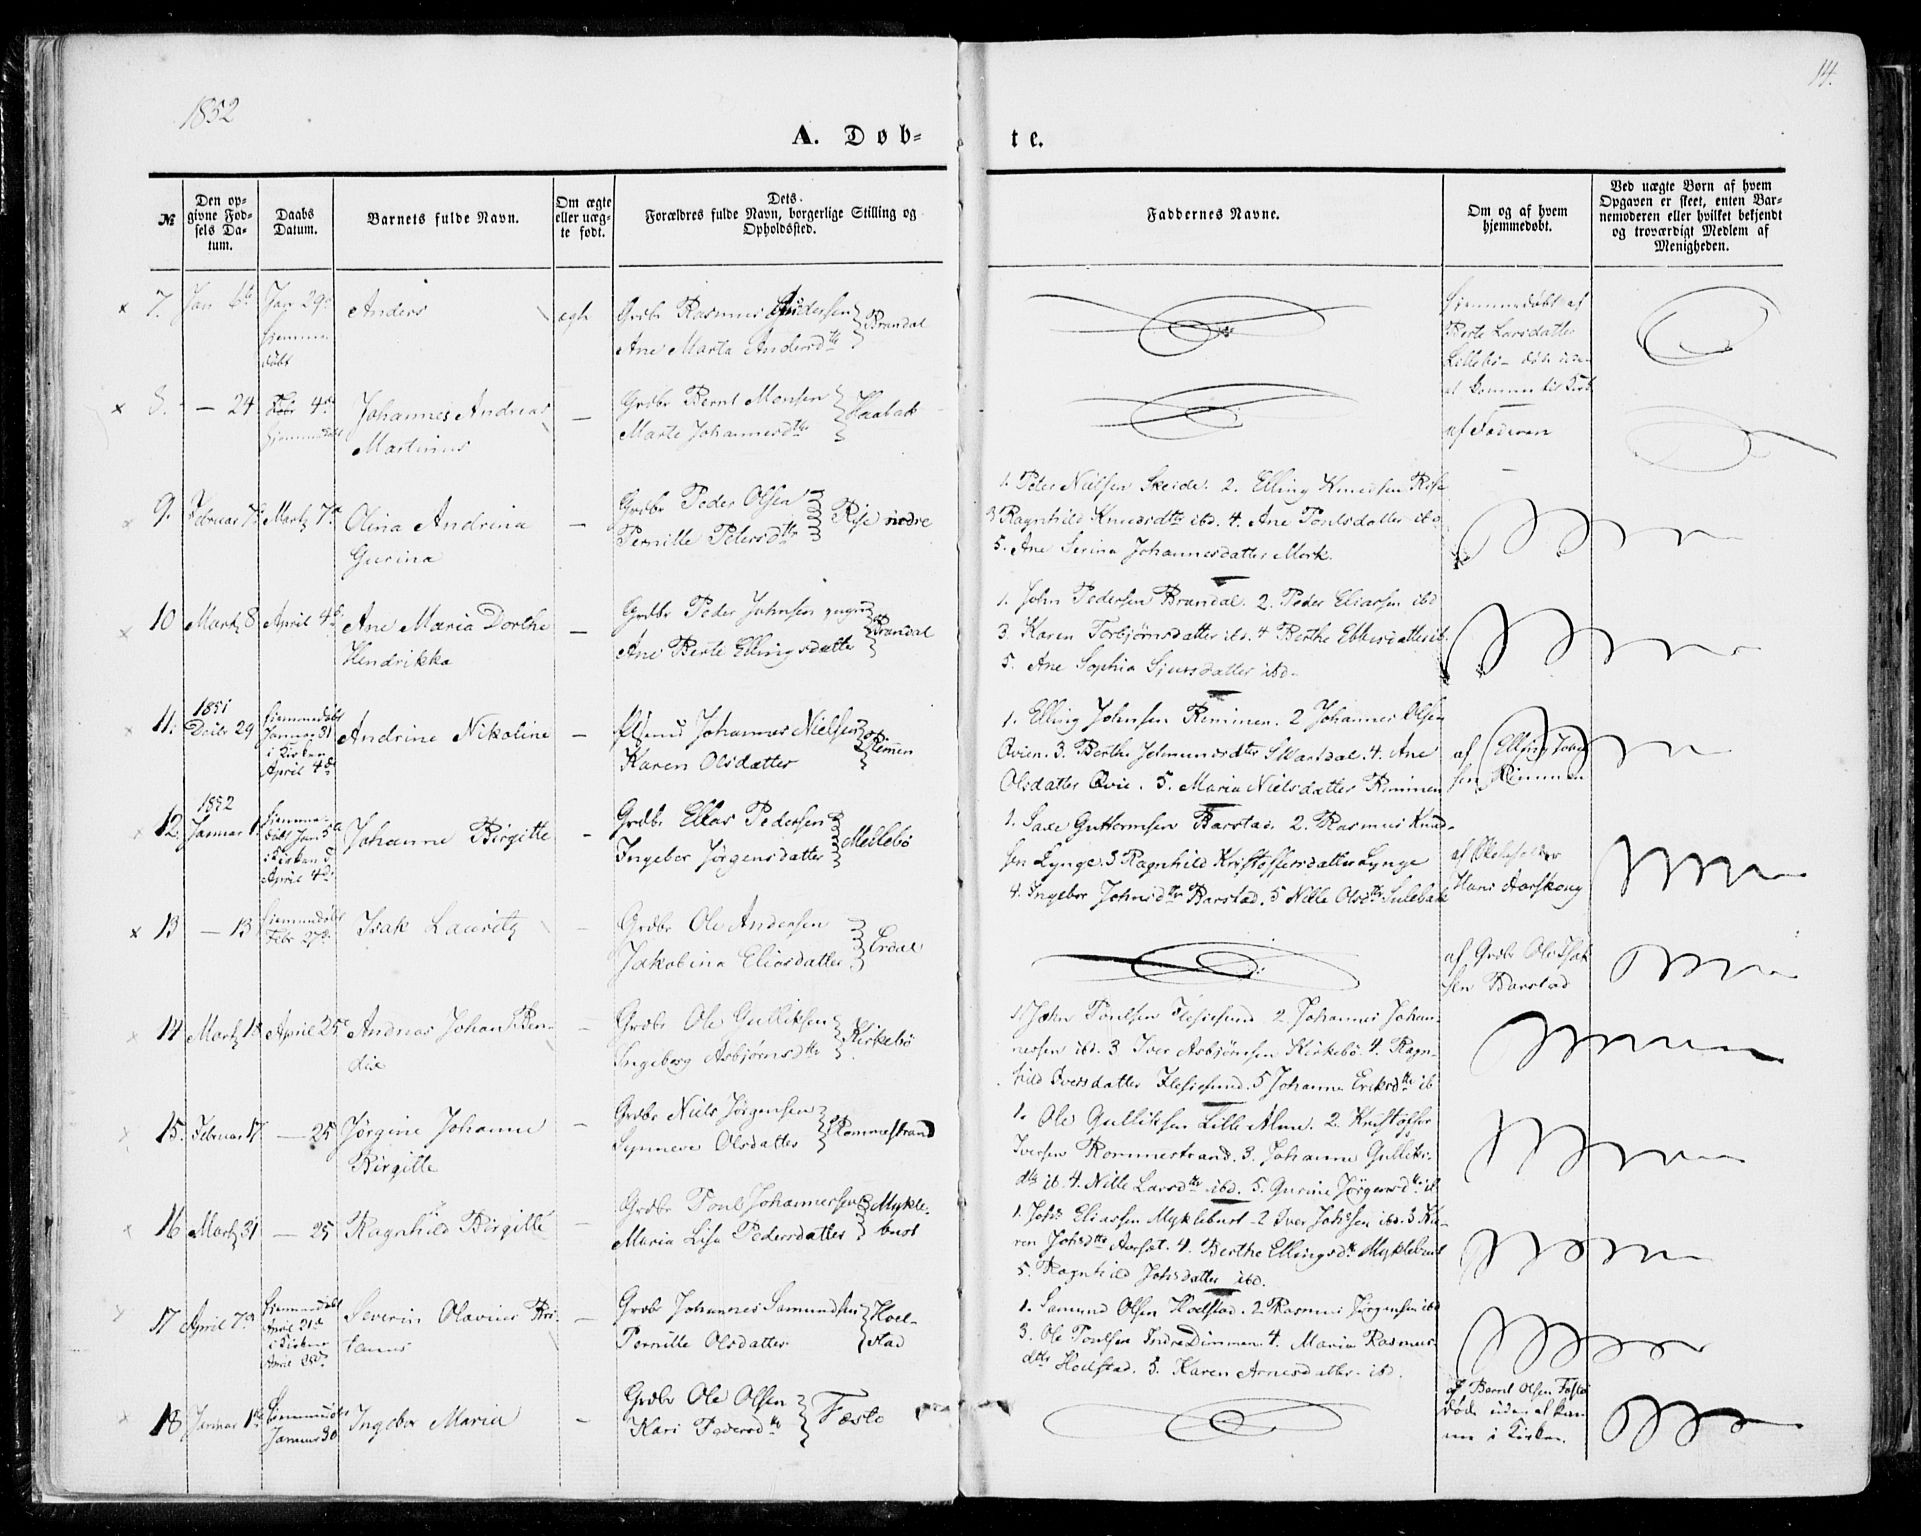 1852
14.
A. Døb-
te.
№
Den op-
givne Fød-
sels Da-
tum.
Daabs
Datum.
Barnets fulde Navn.
Om ægte
eller uæg-
te født.
Dets
Forældres fulde Navn, borgerlige Stilling og
Opholdssted.
Faddernes Navne.
Om og af hvem
hjemmedøbt.
Ved uægte Børn af hvem
Opgaven er skeet, enten Bar-
nemoderen eller hvilket bekjendt
og troværdigt Medlem af
Menigheden.
7. Jan 29
hjemme
døbt
Anders
ægte
Grdbr Rasmus Andersen
Ane Marta Andersdtr
Brandal
hjemmedøbt af
Berte Larsdatter
Lillebø
8. — 24 4de
hjemmedøbt
Johannes Andreas
Martinus
—
Grdbr Bernt Monsen
Marte Johannesdtr
Haabak
af Faderen
9. Februar 7de Marts 7de
Olina Andrina
Gurina
—
Grdbr Peder Olsen
Pernille Petersdtr
Rise nedre
1. Peter Nielsen Skeide. 2. Elling Knudsen Rise
3 Ragnhild Knudsdtr ibd. 4. Ane Poulsdatter ibd
5. Ane Serina Johannesdatter Mork.
10 Marts 8 April 4de
Ane Maria Dorthe
Hendrikka
—
Grdbr Peder Johnsen yngre
Ane Berte Ellingsdatter
Brandal
1. John Pedersen Brandal. 2. Peder Eliassen ibd
3. Karen Torbjørnsdatter ibd. 4 Berthe Ebbesdatter ib
5. Ane Sophia Sjursdatter ibd.
11. 1851
Decbr 29
hjemmedøbt
Januar 31
i Kirken
April 4de
Andrine Nikoline
—
Johannes Nielsen
Karen Olsdatter
Remmen
1. Elling Johnsen Remmen. 2 Johannes Olsen
Øvien. 3. Berthe Jetmundsdtr Svartdal. 4. Ane
Olsdatter Øvie. 5. Maria Nielsdatter Remmen
af Elling John-
sen Rimmen
12. 1852
Januar 1
hjemme-
døbt Jan 5te
i Kirken
April 4de
Johanne Birgitte
—
Grdbr Ellas Pedersen
Ingebor Jørgensdatter
Mellebø
1. Saxe Guttormsen Barstad. 2. Rasmus Knud-
sen Lynge. 3 Ragnhild Kristoffersdatter Lynge
4. Ingebor Johnsdtr Barstad. 5 Nille Olsdtr Sulebak
af Skoleholder
Hans Aarskong
13 — 13
hjemmedøbt
Febr 27de
Isak Lauritz
—
Grdbr Ole Andersen
Jakobina Eliasdatter
Erdal
af Grdbr Ole Isak
sen Barstad
14 Marts 18 April 25
Andreas Johan Ben-
dix
—
Grdbr Ole Gulliksen
Ingeborg Asbjørnsdtr
Kirkebø
1 John Poulsen Flesiesund 2 Johannes Johan-
nessen ibd. 3 Iver Asbjørnsen Kirkebø. 4. Ragn-
hild Iversdatter Flesiesund. 5 Johanne Eriksdtr ib
15. Februar 17 — 25
Jørgine Johanne
Birgitte
—
Grdbr Niels Jørgensen
Synneve Olsdatter
Rommestrand
1. Ole Gulliksen Lille Alme. 2. Kristoffer
Iversen Rommestrand. 3. Johanne Gulliks-
dtr ib. 4. Nille Larsdtr ibd. 5. Gurine Jørgensdtr ib
16 Marts 31 — 25
Ragnhild Birgitte
—
Grdbr Poul Johannessen
Maria Lisa Pedersdatter
Mykle-
bust
1. Johs Eliassen Myklebust 2 Iver Johssen ibd. 3 Ka-
ren Johsdtr Aarset. 4. Berthe Ellingsdtr Myklebust
5. Ragnhild Johsdatter ibd.
17 April 7de
hjemmedøbt
April 21de
i Kirken
April 25de
Severin Olavius Kri-
stianus
—
Grdbr Johannes Samundsen
Pernille Olsdatter
Hoel-
stad
1. Samund Olsen Hoelstad. 2 Rasmus Jørgensen ibd
3. Ole Poulsen Indre Dimmen. 4. Maria Rasmus-
dtr Hoelstad. 5. Karen Arnesdatter ibd.
18 Januar 1ste
hjemmedøbt
Januar 30
Ingebor Maria
—
Grdbr Ole Olsen
Kari Pedersdtr
Fæstø
af Bernt Olsen Fæstø
døde uden at kom-
me i Kirken.